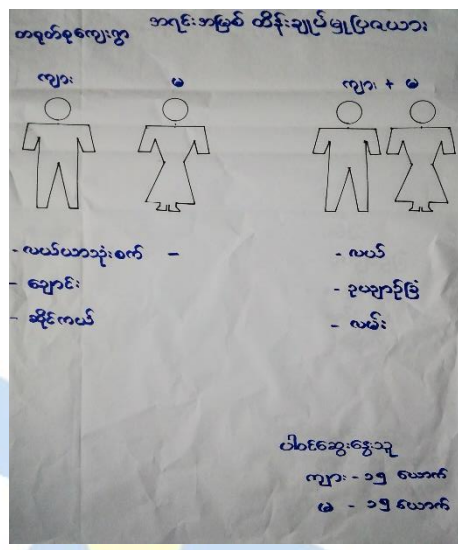 အရင်းအမြစ် ထိန်းချုပ်မှုပြဇယား
တရုတ်စုကျေးရွာ
ကျား
မ
ကျား + မ
- လယ်ယာသုံးစက် -
- ချောင်း
- ဆိုင်ကယ်
- လယ်
- ဥယျာဉ်ခြံ
- လမ်း
ပါဝင်ဆွေးနွေးသူ
ကျား - ၁၅ ယောက်
မ - ၁၅ ယောက်